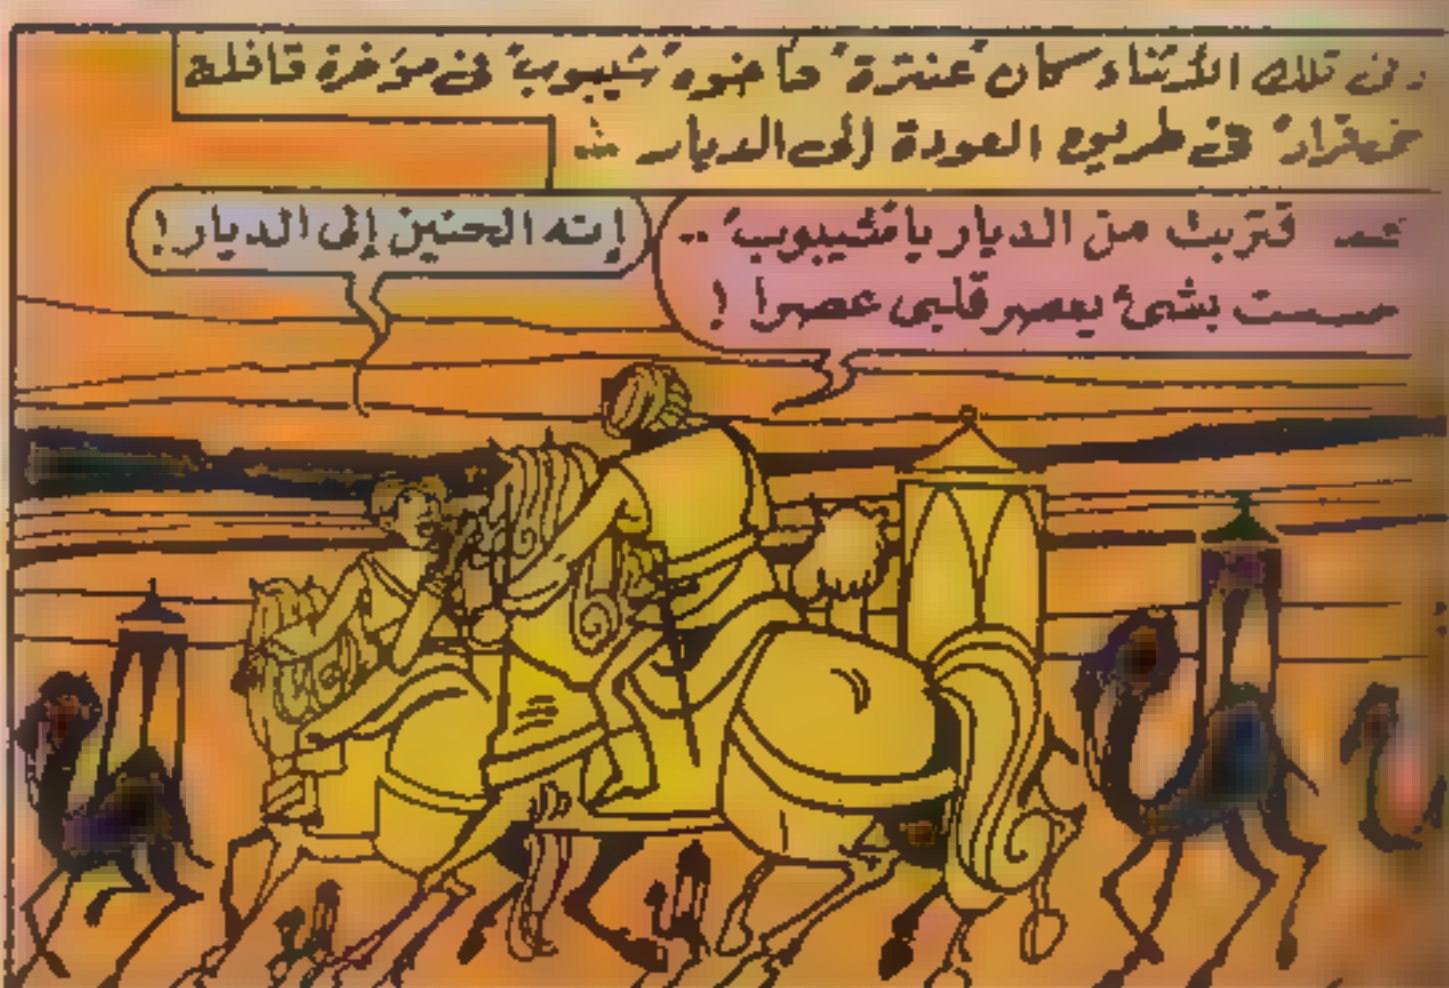 وفى تلك الأثناء كان "عنترة" وأخوه "شيبوب" فى مؤخرة قافلة
فى طريق العودة إلى الديار
قتربت من الديار يا "شيبوب" ..
سست بشئ يعصر قلبى عصرا !
إنه الحنين إلى الديار !